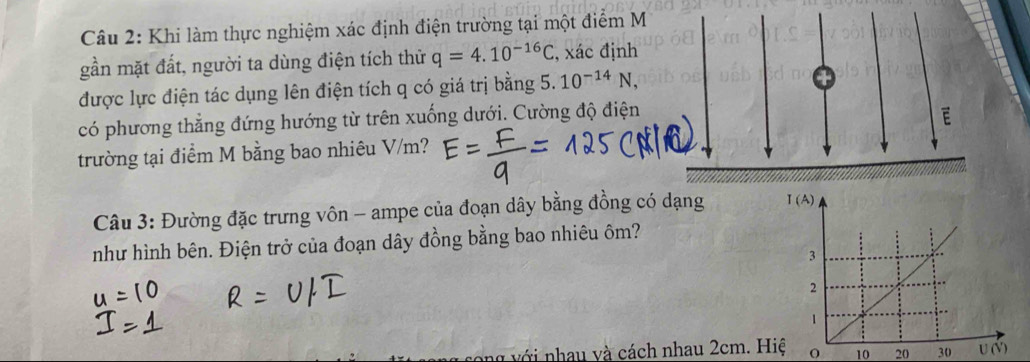 Câu 2: Khi làm thực nghiệm xác định điện trường tại một điểm M
gần mặt đất, người ta dùng điện tích thử q = 4. 10⁻¹⁶C, xác định
được lực điện tác dụng lên điện tích q có giá trị bằng 5. 10⁻¹⁴ N,
có phương thẳng đứng hướng từ trên xuống dưới. Cường độ điện
trường tại điểm M bằng bao nhiêu V/m? E = F/q = 125
E⃗
Câu 3: Đường đặc trưng vôn – ampe của đoạn dây bằng đồng có dạng
như hình bên. Điện trở của đoạn dây đồng bằng bao nhiêu ôm?
u = 10 R = U/I
I = 1
I (A)
3
2
1
O 10 20 30 U (V)
song với nhau và cách nhau 2cm. Hiệ